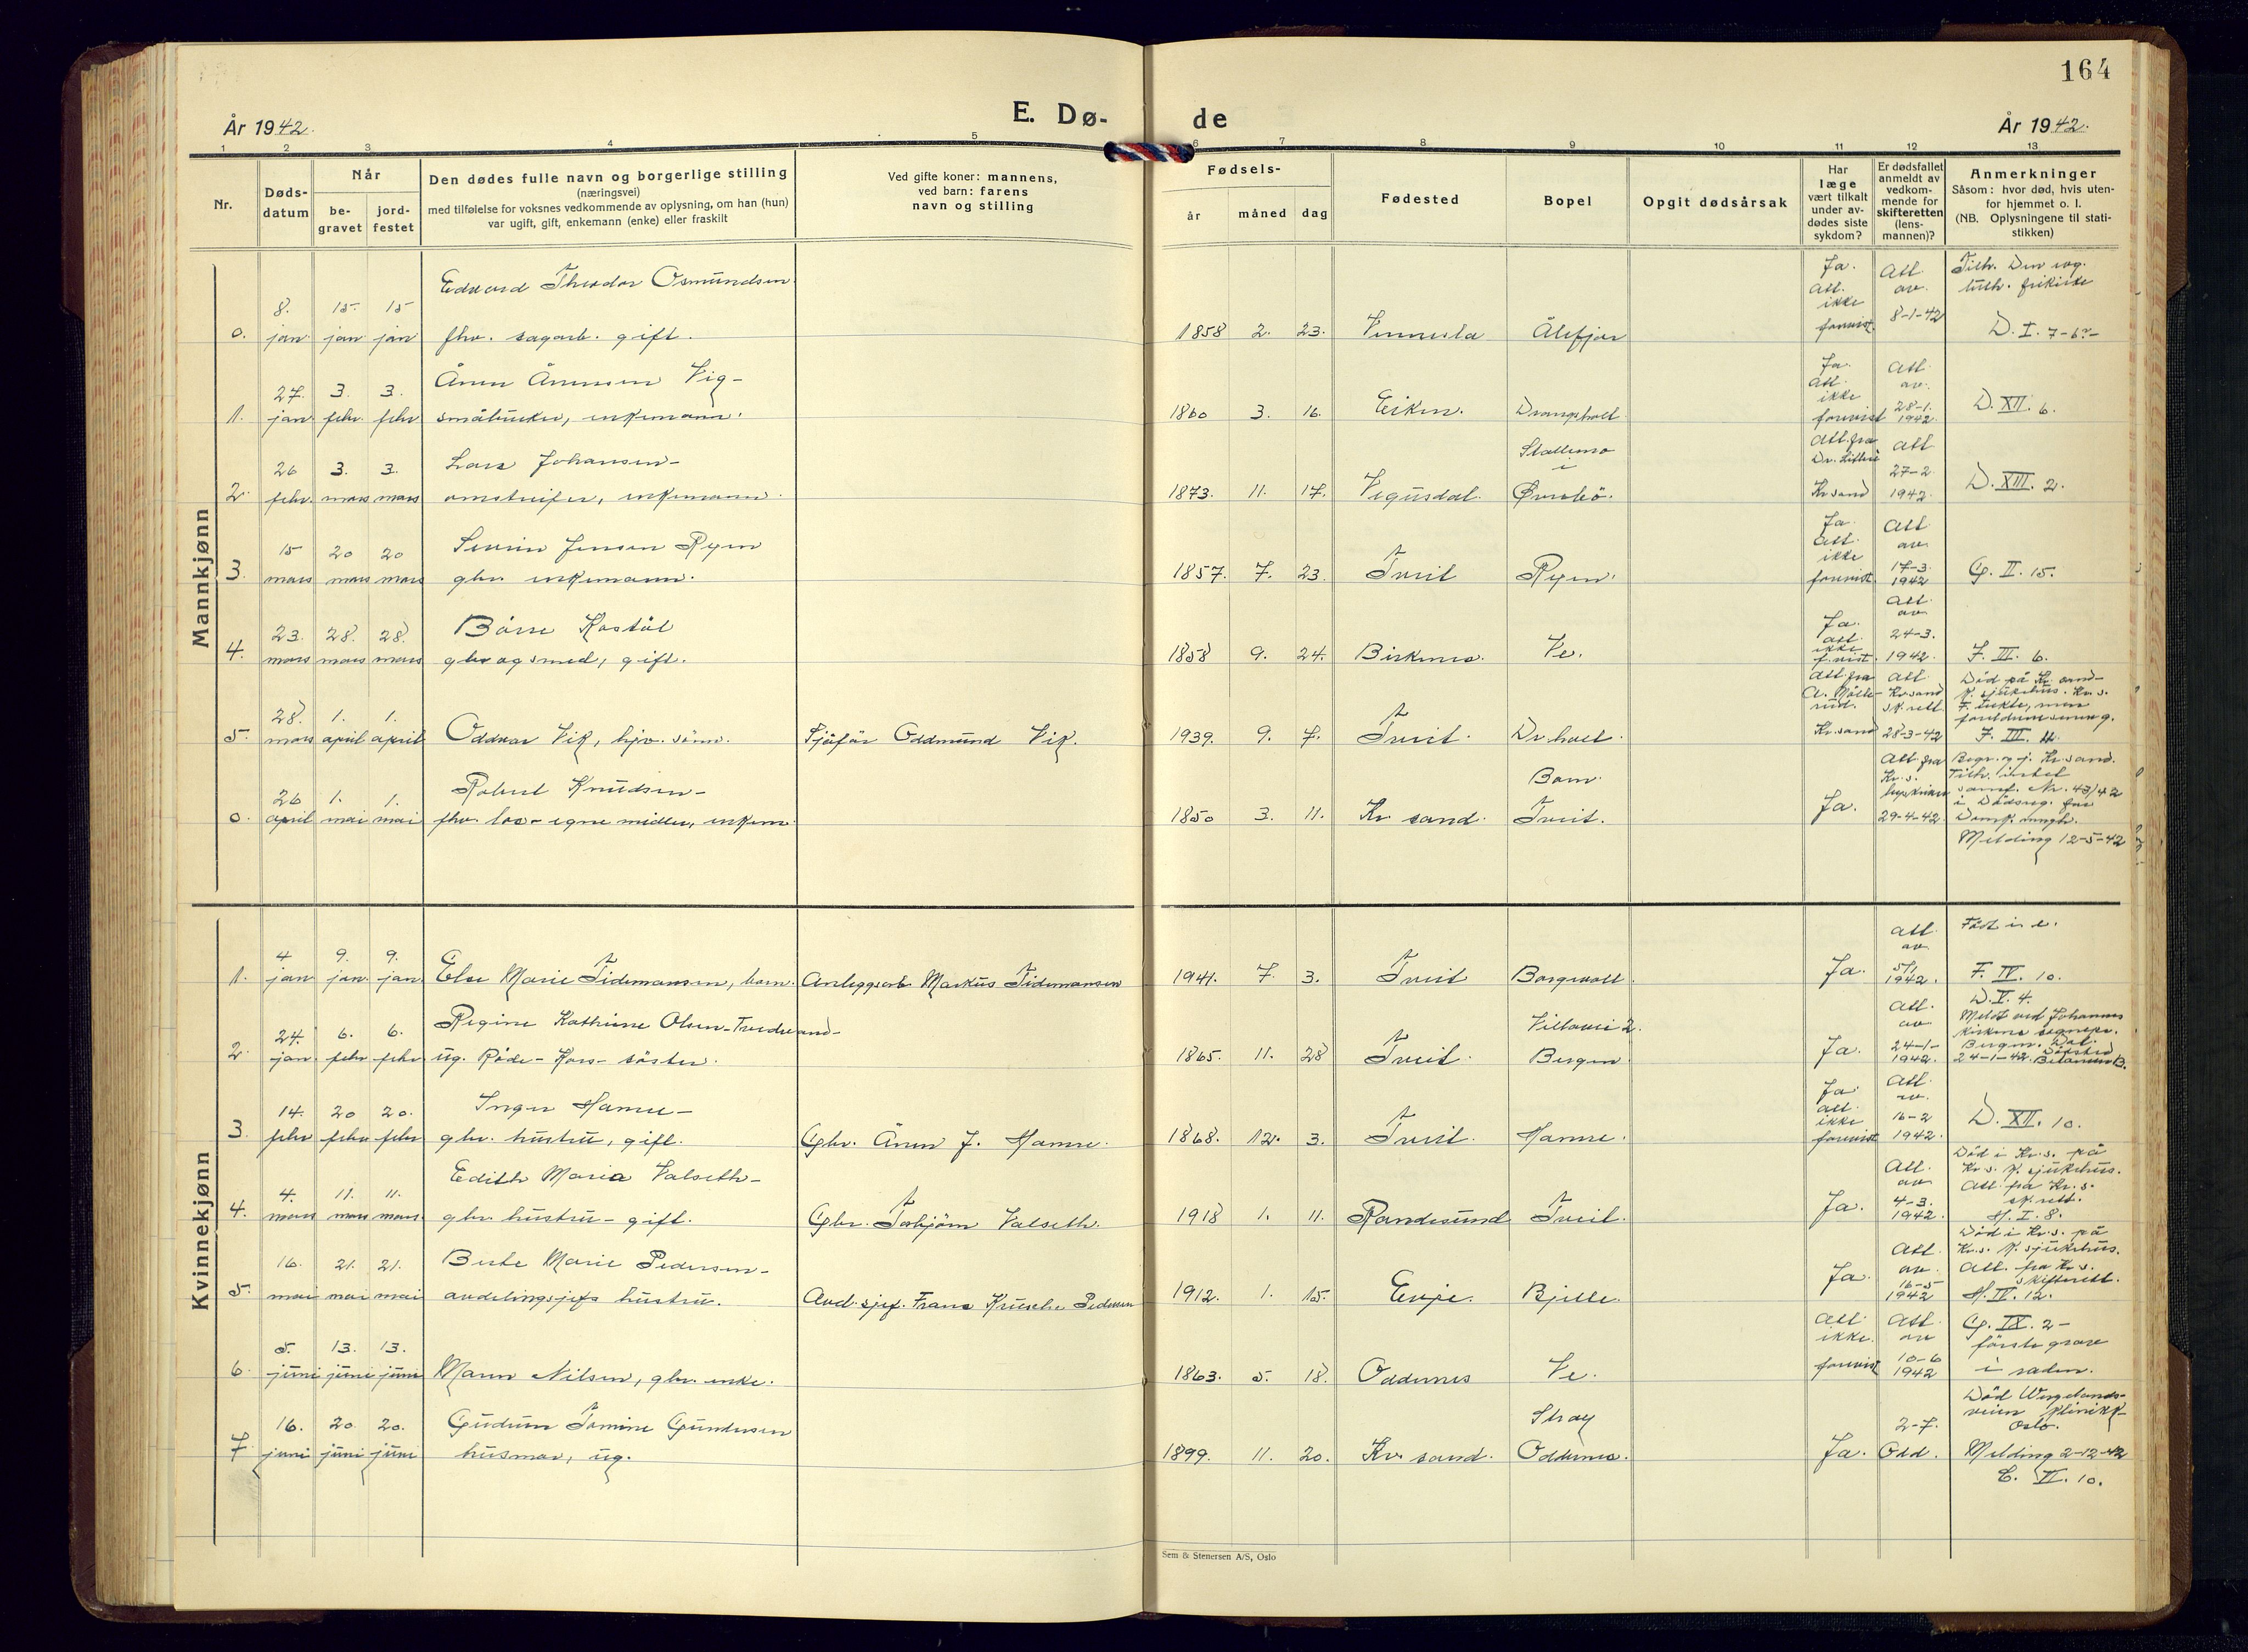 164
E. Dø-
de
År 1942.
År 1942.
1 2 3 4 5 6 7 8 9 10 11 12 13
Nr.
Døds-
datum
Når
be-
gravet
jord-
festet
Den dødes fulle navn og borgerlige stilling
(næringsvei)
med tilføielse for voksnes vedkommende av oplysning, om han (hun)
var ugift, gift, enkemann (enke) eller fraskilt
Ved gifte koner: mannens,
ved barn: farens
navn og stilling
Fødsels-
år
måned
dag
Fødested
Bopel
Opgit dødsårsak
Har
læge
vært tilkalt
under av-
dødes siste
sykdom?
Er dødsfallet
anmeldt av
vedkom-
mende for
skifteretten
(lens-
mannen)?
Anmerkninger
Såsom: hvor død, hvis uten-
for hjemmet o. l.
(NB. Oplysningene til stati-
stikken)
Mannkjønn
0.
8.
jan
15.
jan
15
jan
Edvard Theodor Osmundsen
fhv. sagarb. gift.
1858 2. 23.
Vennesla
Ålefjær
Ja.
Att.
ikke
forevist
Att
av.
8-1-42
Tilh. Den evg.
luth. frikirke
D. I. 7-6?-
1.
27.
jan
3.
febr.
3.
febr
Ånen Ånensen Vig-
småbruker, enkemann.
1860 3. 16.
Eiken.
Drangsholt
Ja.
Att.
ikke
forevist
Att.
av.
28-1.
1942.
D. XII. 6.
2.
26
febr.
3.
mars
3.
mars
Lars Johansen-
omstreifer, enkemann.
1873. 11. 17.
Vegusdal.
Stallemo
i
Øvrebö.
Att. fra
Dr.
Kr sand
Att
27-2
1942.
D. XIII. 2.
3.
15
mars
20
mars
20
mars
Severin Jensen Ryen
gbr. enkemann.
1857. 7. 23.
Tveit
Ryen.
Ja.
Att.
ikke
forevist
Att
av.
17-3.
1942
G. II. 15.
4.
23.
mars
28.
mars
28.
mars
Börre Kostöl
gbr og smed, gift.
1858 9. 24.
Birkenes.
Ve.
Ja.
att.
ikke
f. vist.
Att.
av
24-3.
1942.
F. III. 6.
5.
28.
mars
1.
april
1.
april
Oddvar Vik, hjv. sönn.
Sjåför Oddmund Vik.
1939. 9. 7.
Tveit.
Dr. holt.
Att. fra
Kr. sand
Att.
Kr. sand
sk. rett
28-3-42
Död på Kr. sand-
s. sjukehus. Kr. s.
F. III. 4.
0.
26
april
1.
mai
1.
mai
Robert Knudsen-
fhv. los - egne midler, enkem
1850 3. 11.
Kr. sand.
Boen.
Tveit.
Ja.
Att. fra
Kr. s.
29-4-42.
Begr. og j. Kr. sand.
Nr. 43/42
Melding 12-5-42
Kvinnekjønn
1.
4
jan
9.
jan.
9.
jan
Else Marie Tidemansen, barn.
Anleggsarb. Markus Tidemansen
1941. 7. 3.
Tveit
Borgvoll.
Ja.
Att.
av
5/1
1942.
Født i e.
F. IV. 10.
2.
24.
jan.
6.
febr
6.
febr
Regine Kathrine Olsen - Tvedsrand-
ug. Röde - Kors - söster.
1865. 11. 28
Tveit.
Villavei 2.
Bergen
Ja.
Att.
av
24-1-
1942.
D. V. 4.
Meldt ved Johannes
kirkens sognepr.
Bergen. Dat.
24-1-42.
3.
14.
febr
20
febr
20.
febr
Inger Hamre-
gbr. hustru, gift.
Gbr. Ånen J. Hamre.
1868. 12. 3.
Tveit.
Hamre.
Ja.
att.
ikke
forevist
Att.
av.
16-2
1942.
D. XII. 10.
4.
4.
mars
11.
mars
11.
mars
Edith Maria Valseth-
gbr. hustru - gift.
Gbr. Torbjörn Valseth.
1918 1. 11.
Randesund
Tveit.
Ja.
Att.
av
4-3.
1942.
Död i Kr. s. på
Kr. s. s. sjukehus.
Att. fra Kr. s.
sk. rett.
H. I. 8.
5.
16.
mai
21.
mai
21.
mai
Berte Marie Pedersen-
avdelingsjefs hustru.
Avd. sjef. Frans Krusche Pedersen
1912. 1. 15.
Evje.
Bjelle.
Ja.
Att.
av.
16-5
1942
Död i Kr. s. på
Kr. s. s. sjukehus.
Att. fra Kr. s.
skifterett.
H. IV. 12.
6.
5.
juni
13.
juni
13.
juni
Maren Nilsen, gbr. enke.
1863. 5. 18.
Oddernes
Ve.
Att.
ikke.
forevist
Att.
av
10-6
1942
G. IX. 2-
förste grav
i raden.
7.
16.
juni
20.
juni
20.
juni
Gudrun Tomine Gundersen
husmor, ug.
1899. 11. 20.
Kr. sand.
Stray
Oddernes.
Ja.
2-7.
Odd.
Död Wergelands-
veien klinikk-
Oslo.
Melding 2-12-42
C. VI. 10.
Sem & Stenersen A/S, Oslo